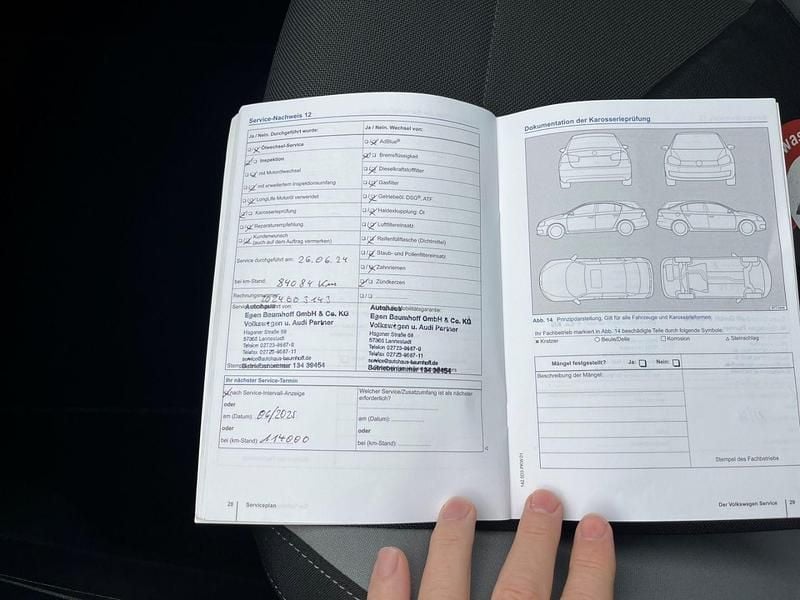 Service-Nachweis 12
Ja / Nein. Durchgeführt wurde:
Ölwechsel-Service
Inspektion
mit Motorölwechsel
mit erweitertem Inspektionsumfang
LongLife Motoröl verwendet
Karosserieprüfung
Reparaturempfehlung
Kundenwunsch
(auch auf dem Auftrag vermerken)
Service durchgeführt am: 26.06.24
bei km-Stand: 84084 Km
Autohaus
Egen Baumhoff GmbH & Co. KG
Volkswagen u. Audi Partner
Hagener Straße 59
57368 Lennestadt
Telefon 02723-9687-0
Telefax 02723-9687-11
service@autohaus-baumhoff.de
Betriebsnummer 134 39454
Ja / Nein. Wechsel von:
AdBlue®
Bremsflüssigkeit
Dieselkraftstofffilter
Gasfilter
Getriebeöl: DSG®, ATF
Haldexkupplung: Öl
Luftfiltereinsatz
Reifenfüllflasche (Dichtmittel)
Staub- und Pollenfiltereinsatz
Zahnriemen
Zündkerzen
Autohaus
Egen Baumhoff GmbH & Co. KG
Volkswagen u. Audi Partner
Hagener Straße 59
57368 Lennestadt
Telefon 02723-9687-0
Telefax 02723-9687-11
service@autohaus-baumhoff.de
Betriebsnummer 134 39454
Ihr nächster Service-Termin
nach Service-Intervall-Anzeige
oder
am (Datum): 06/2025
oder
bei (km-Stand): 114000
Welcher Service/Zusatzumfang ist als nächster
erforderlich?
am (Datum):
oder
bei (km-Stand):
28 Serviceplan
Dokumentation der Karosserieprüfung
Abb. 14 Prinzipdarstellung. Gilt für alle Fahrzeuge und Karosserieformen.
Ihr Fachbetrieb markiert in Abb. 14 beschädigte Teile durch folgende Symbole:
× Kratzer ○ Beule/Delle □ Korrosion △ Steinschlag
Mängel festgestellt? Ja: Nein:
Beschreibung der Mängel:
Stempel des Fachbetriebs
Der Volkswagen Service 29